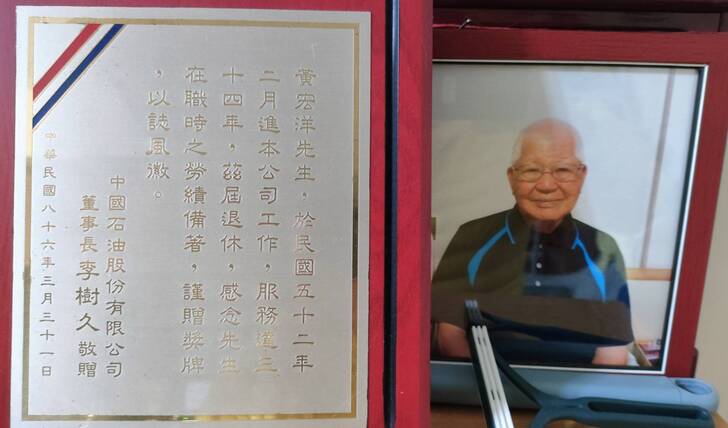 黃宏洋先生，於民國五十二年
二月進本公司工作，服務達三
十四年，茲屆退休，感念先生
在職時之勞績備著，謹贈獎牌
，以誌風徽。
中國石油股份有限公司
董事長李樹久敬贈
中華民國八十六年三月三十一日